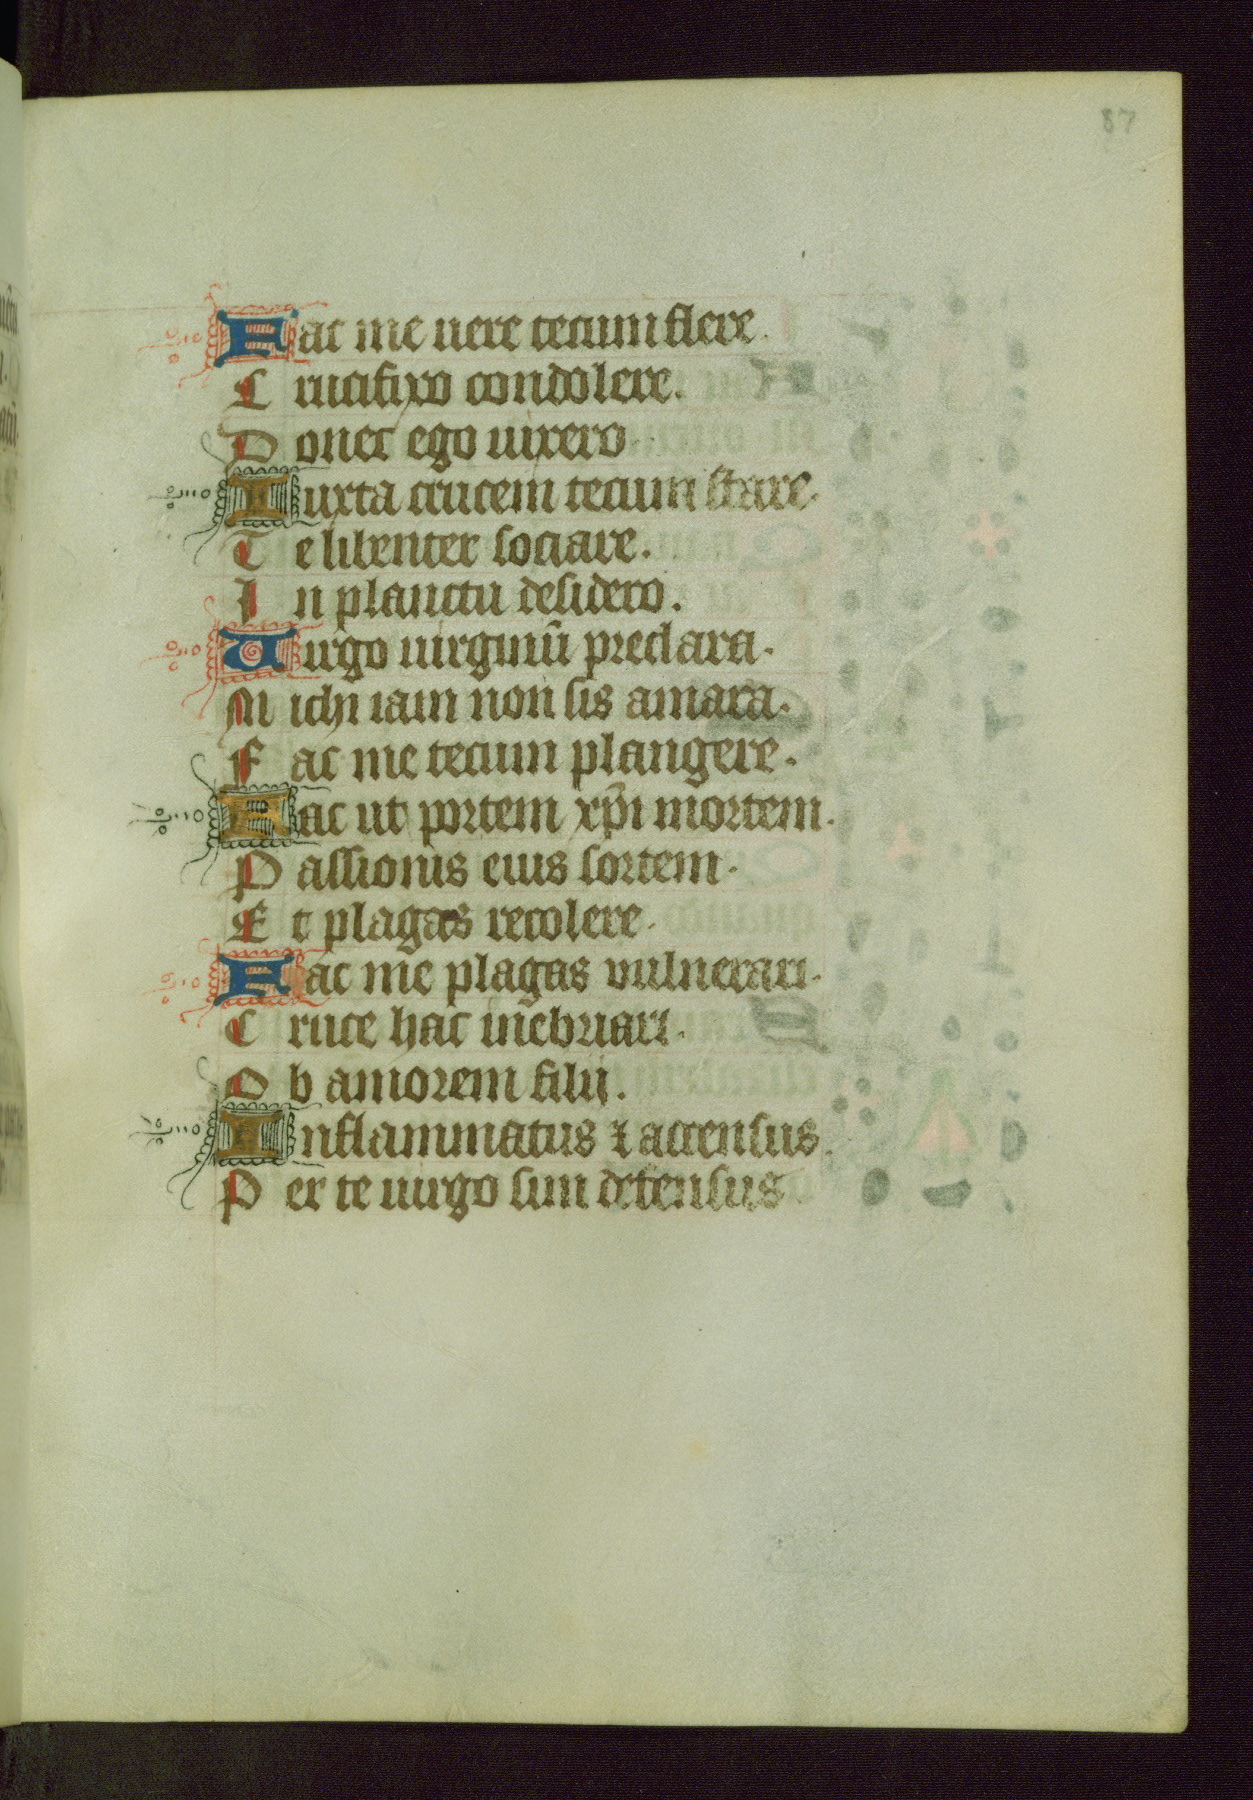 87
Fac me uere tecum flere.
Crucifixo condolere.
Donec ego uixero.
Iuxta crucem tecum stare.
Te libenter sociare.
In planctu desidero.
Uirgo uirginū preclara.
Michi iam non sis amara.
Fac me tecum plangere.
Fac ut portem xp̄i mortem.
Passionis eius sortem.
Et plagas recolere.
Fac me plagas vulnerari.
Cruce hac inebriari.
Ob amorem filii.
Inflammatus ⁊ accensus.
Per te uirgo sim defensus